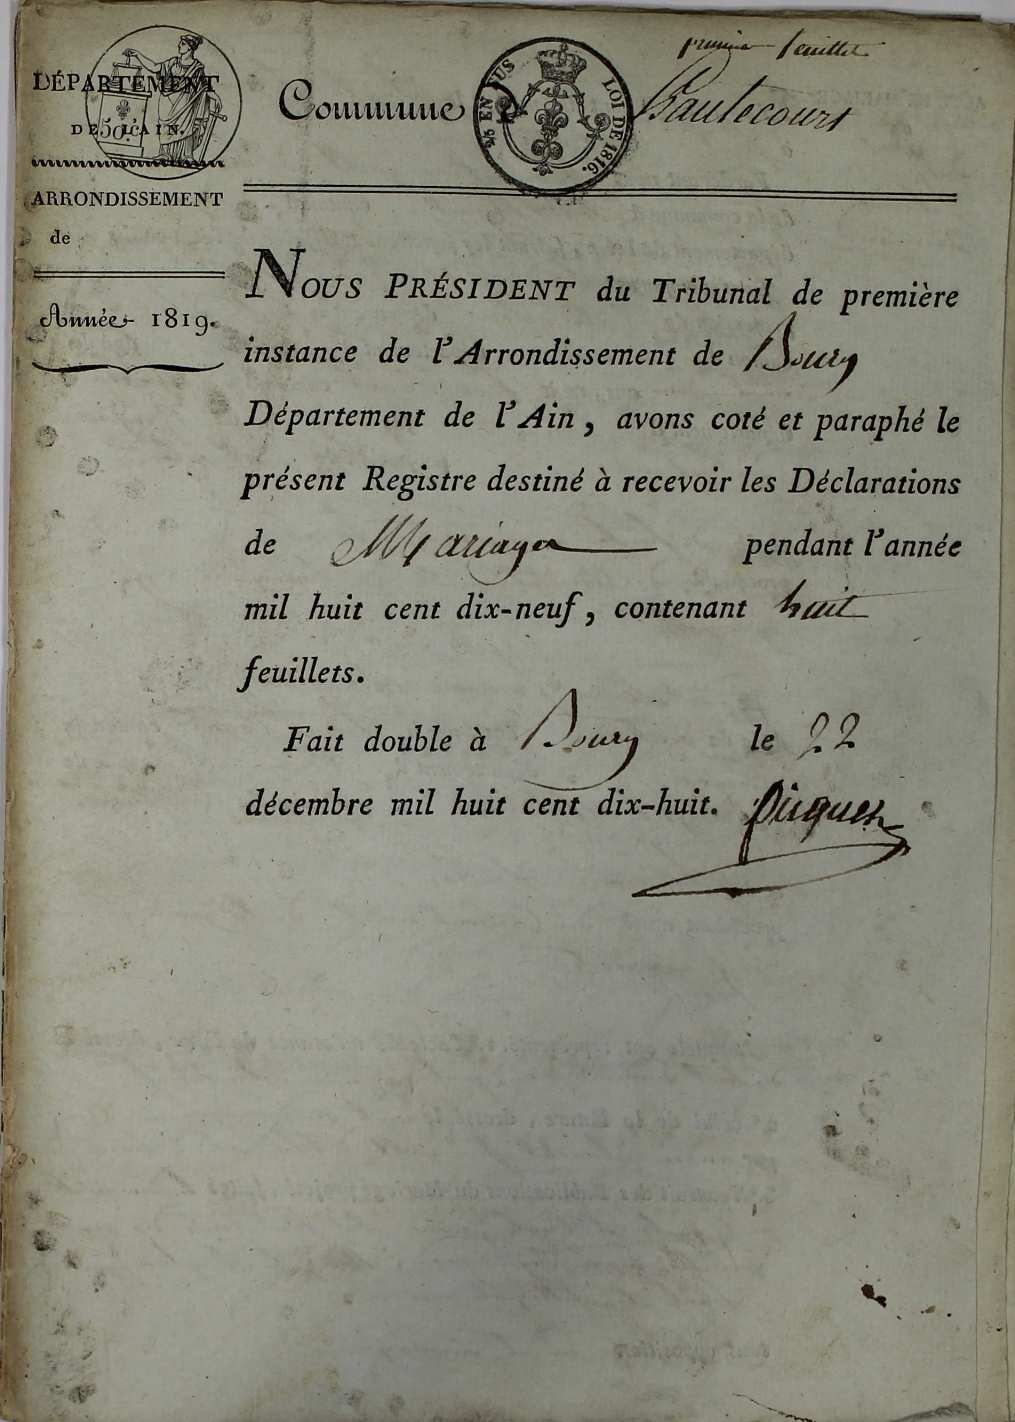 premier feuillet
DÉPARTEMENT
DE L'AIN.
50 c.
Commune d
Hautecourt
⅖ EN SUS
LOI DE 1816.
ARRONDISSEMENT
de
Année 1819.
NOUS PRÉSIDENT du Tribunal de première
instance de l'Arrondissement de Bourg
Département de l'Ain, avons coté et paraphé le
présent Registre destiné à recevoir les Déclarations
de Mariages pendant l'année
mil huit cent dix-neuf, contenant huit
feuillets.
Fait double à Bourg le 22
décembre mil huit cent dix-huit.